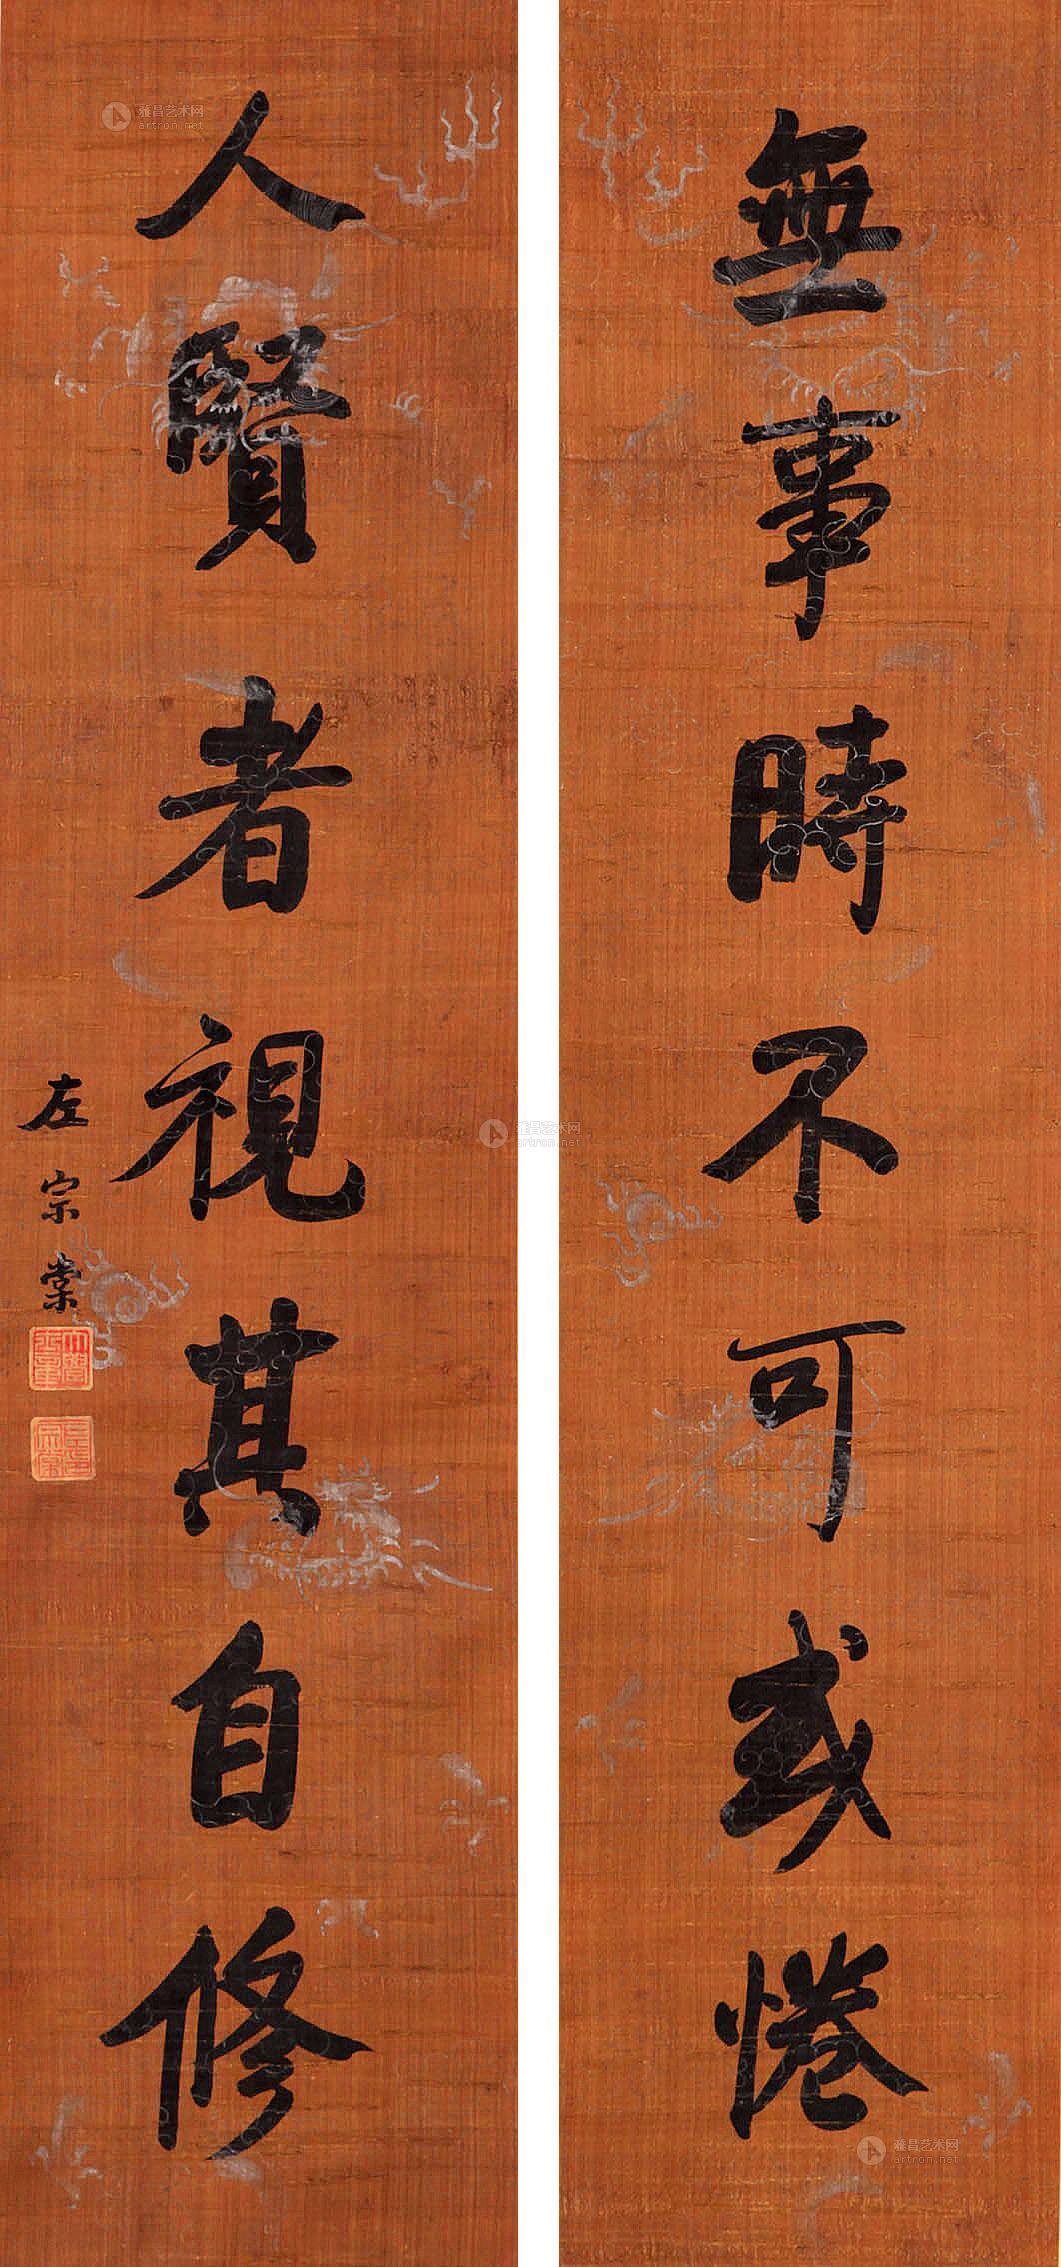 無事時不可或惓
人賢者視其自修
左宗棠
雅昌艺术网
artron.net
雅昌艺术网
artron.net
雅昌艺术网
artron.net